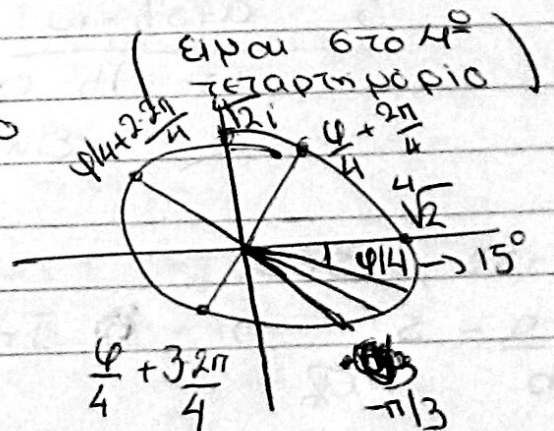 (είμαι στο 4º
τεταρτημόριο)
φ/4+2·2π/4
√12 i
φ/4 + 2π/4
⁴√2
φ/4 → 15°
φ/4 + 3·2π/4
-π/3